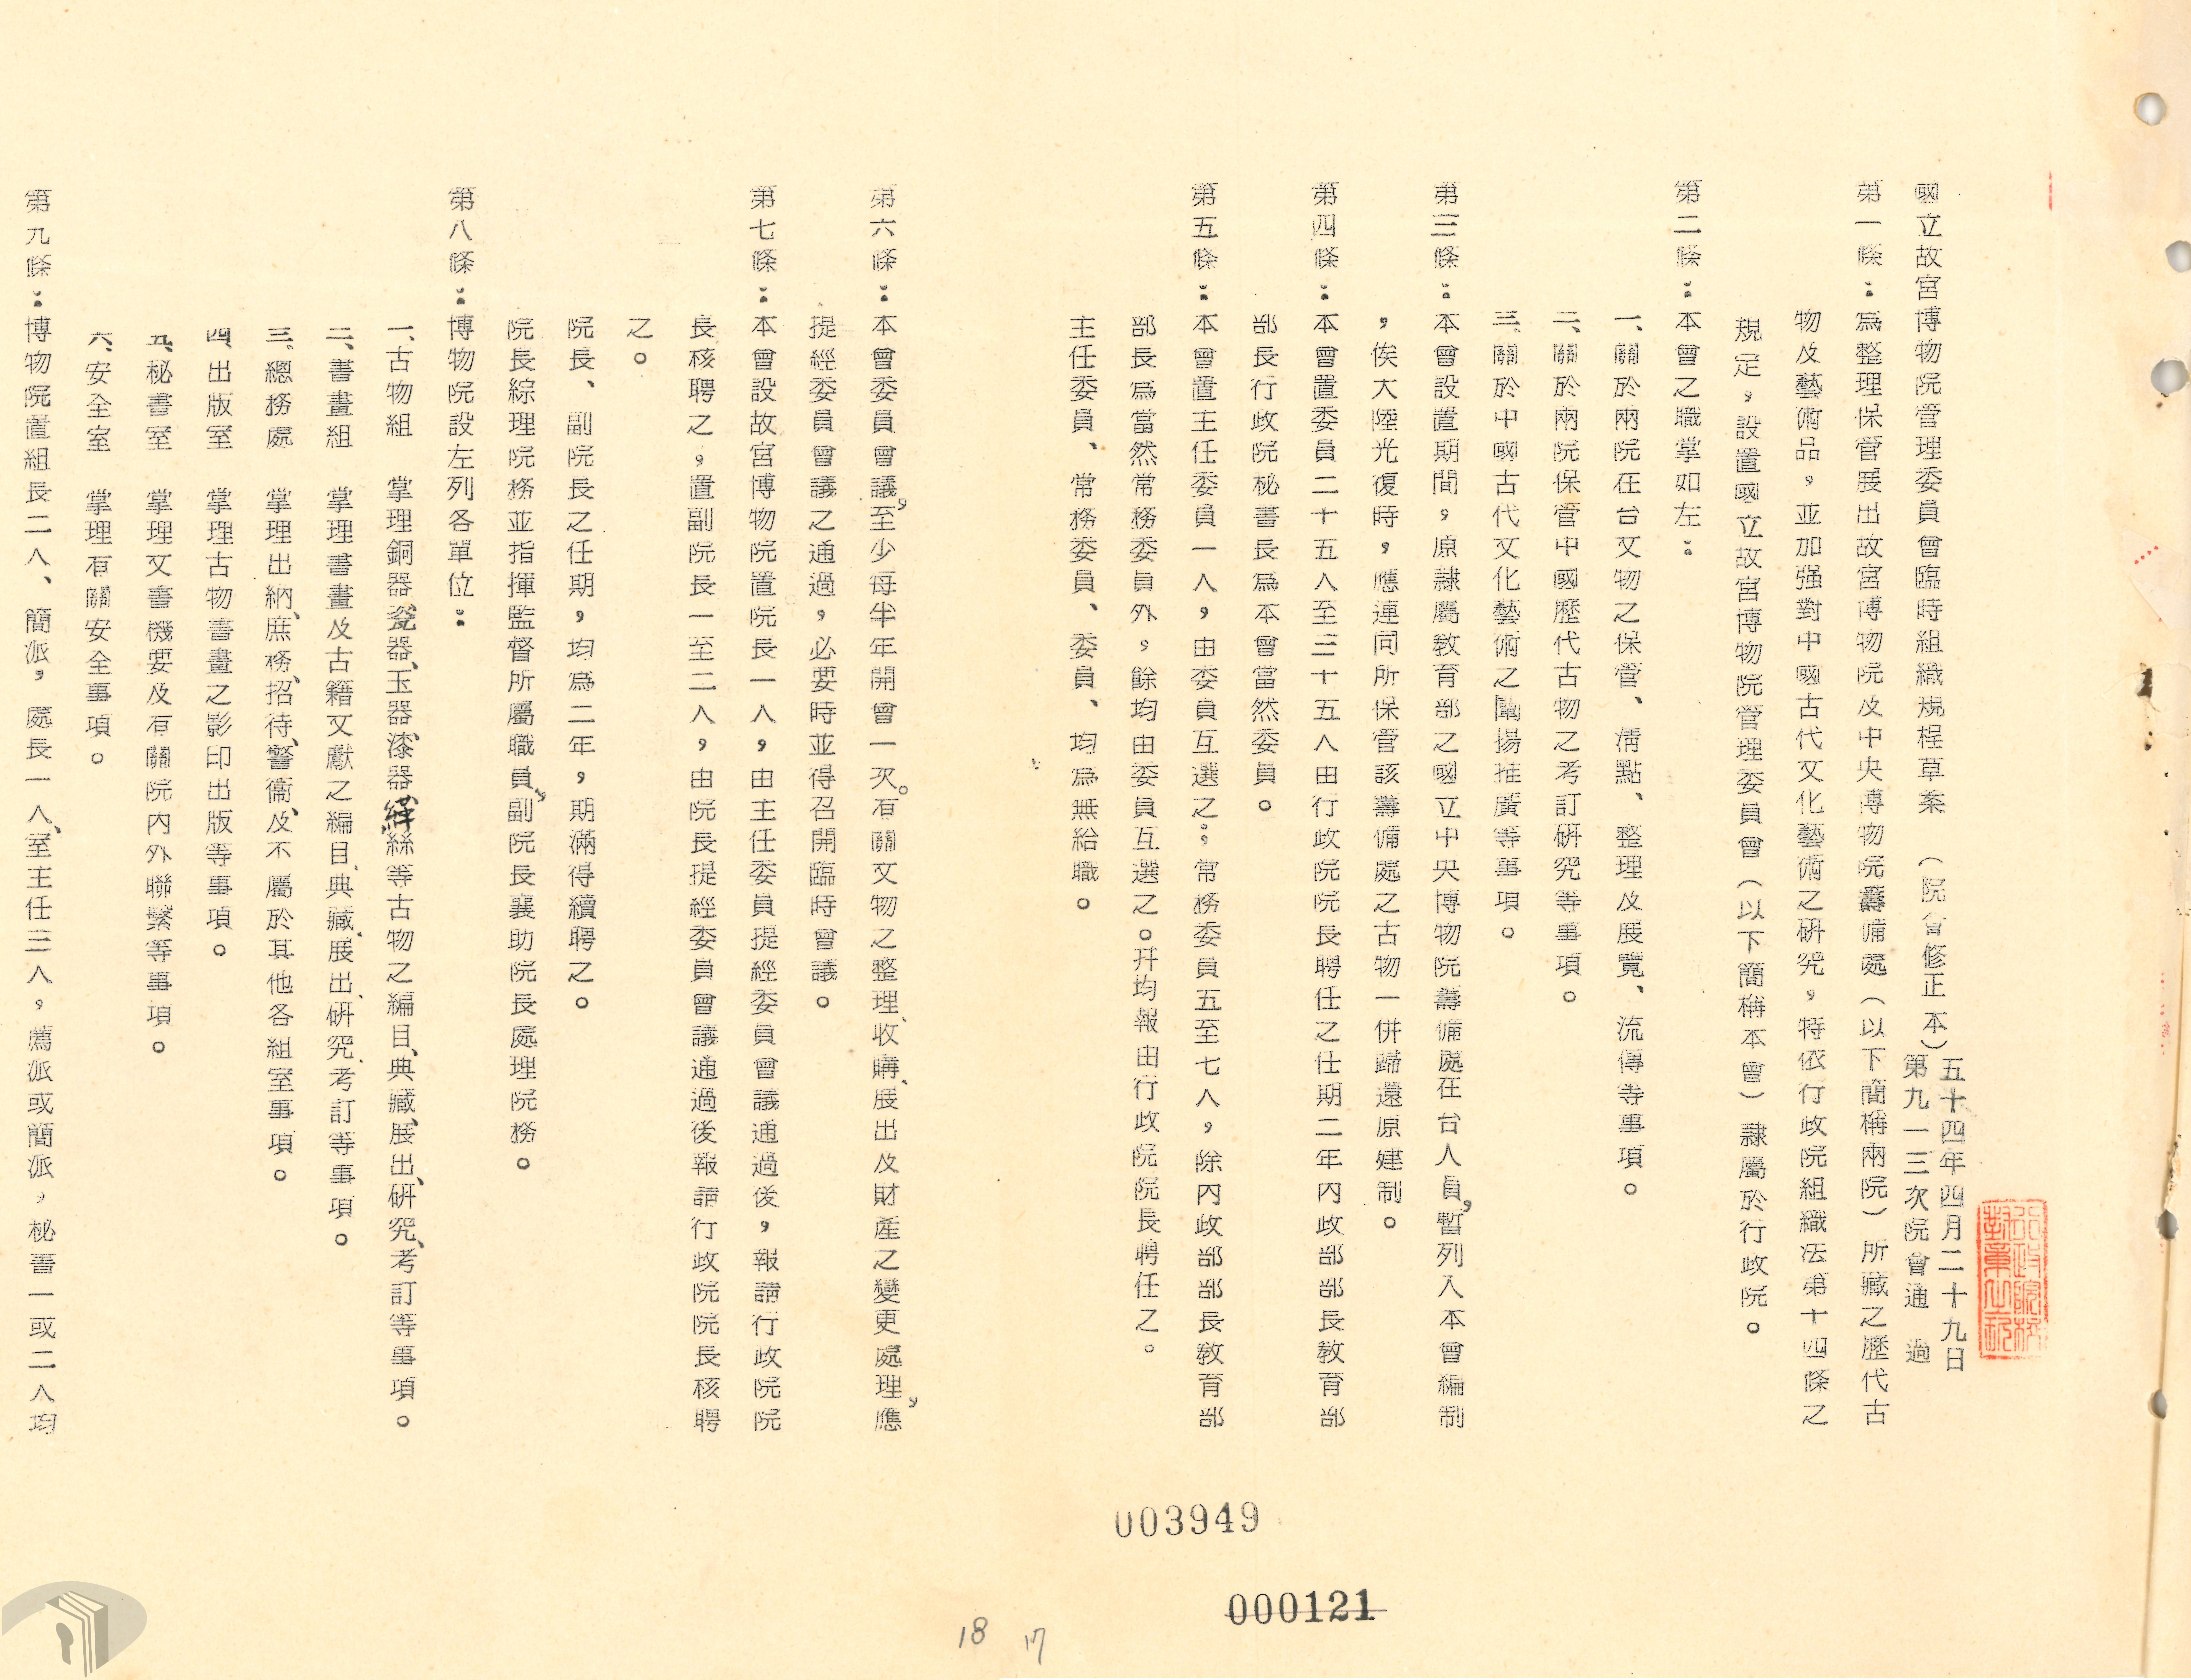 國立故宮博物院管理委員會臨時組織規程草案　（院會修正本）
五十四年四月二十九日
第九一三次院會通過
第一條：為整理保管展出故宮博物院及中央博物院籌備處（以下簡稱兩院）所藏之歷代古
物及藝術品，並加强對中國古代文化藝術之研究，特依行政院組織法第十四條之
規定，設置國立故宮博物院管理委員會（以下簡稱本會）隸屬於行政院。
第二條：本會之職掌如左：
一、關於兩院在台文物之保管、清點、整理及展覽、流傳等事項。
二、關於兩院保管中國歷代古物之考訂研究等事項。
三、關於中國古代文化藝術之闡揚推廣等事項。
第三條：本會設置期間，原隸屬教育部之國立中央博物院籌備處在台人員，暫列入本會編制
，俟大陸光復時，應連同所保管該籌備處之古物一併歸還原建制。
第四條：本會置委員二十五人至三十五人由行政院院長聘任之任期二年內政部部長教育部
部長行政院秘書長為本會當然委員。
第五條：本會置主任委員一人，由委員互選之；常務委員五至七人，除內政部部長教育部
部長為當然常務委員外，餘均由委員互選之。并均報由行政院院長聘任之。
主任委員、常務委員、委員、均為無給職。
第六條：本會委員會議，至少每半年開會一次。有關文物之整理、收購、展出及財產之變更處理，應
提經委員會議之通過，必要時並得召開臨時會議。
第七條：本會設故宮博物院置院長一人，由主任委員提經委員會議通過後，報請行政院院
長核聘之，置副院長一至二人，由院長提經委員會議通過後報請行政院院長核聘
之。
院長、副院長之任期，均為二年，期滿得續聘之。
院長綜理院務並指揮監督所屬職員，副院長襄助院長處理院務。
第八條：博物院設左列各單位：
一、古物組　掌理銅器、瓷器、玉器、漆器、緙絲等古物之編目、典藏、展出、研究、考訂等事項。
二、書畫組　掌理書畫及古籍文獻之編目、典藏、展出、研究、考訂等事項。
三、總務處　掌理出納、庶務、招待、警衞、及不屬於其他各組室事項。
四、出版室　掌理古物書畫之影印出版等事項。
五、秘書室　掌理文書機要及有關院內外聯繫等事項。
六、安全室　掌理有關安全事項。
第九條：博物院置組長二人、簡派，處長一人、室主任三人，薦派或簡派，秘書一或二人均
003949
000121
18　17